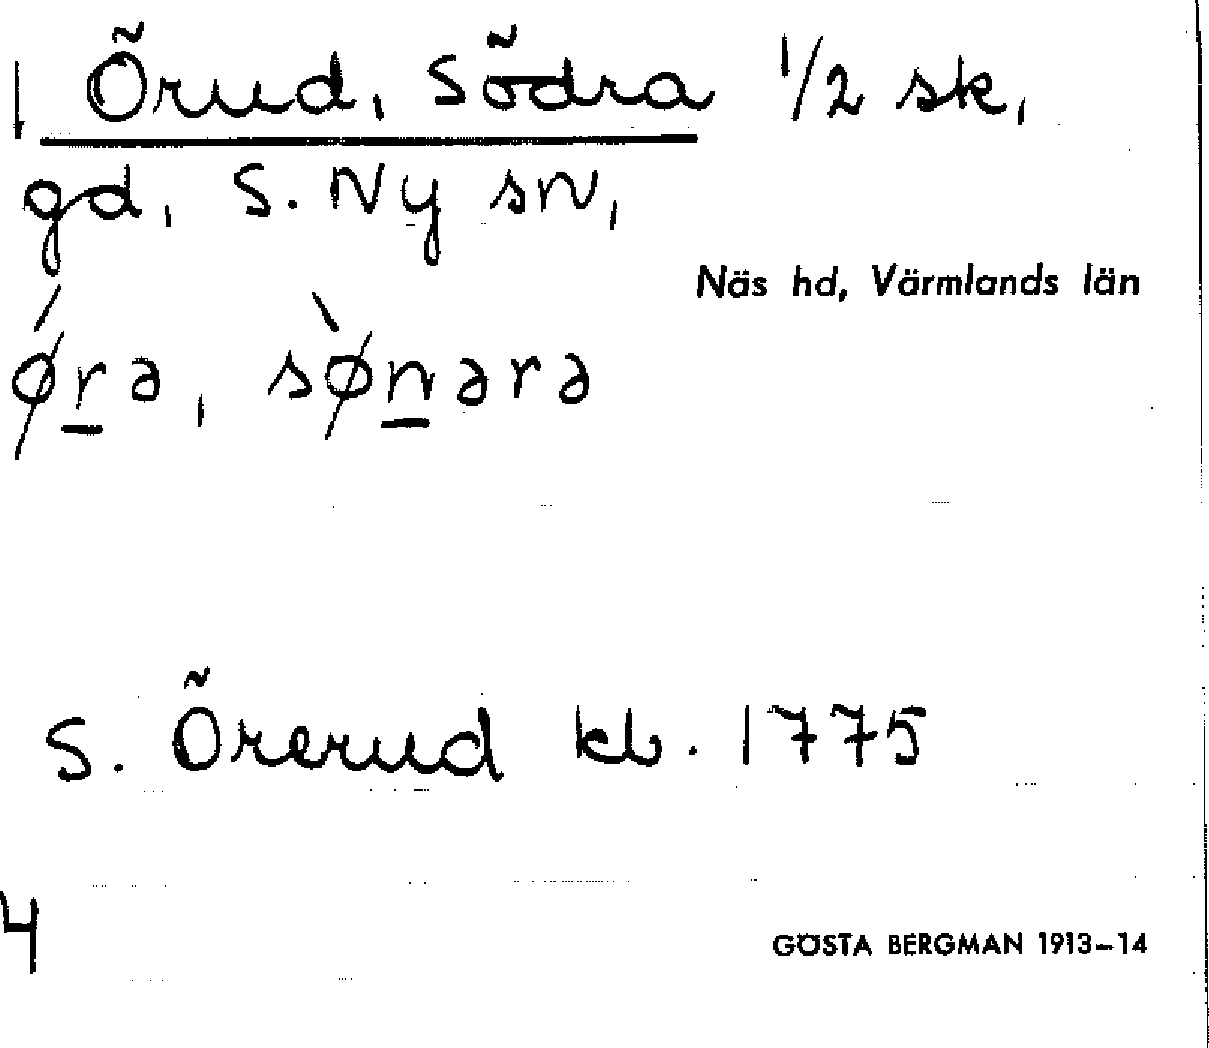 Örud, Södra 1/2 sk,
gd, S. Ny sn,
Näs hd, Värmlands län
ǿrə, sø̀nərə
S. Örerud kb. 1775
4
GÖSTA BERGMAN 1913–14